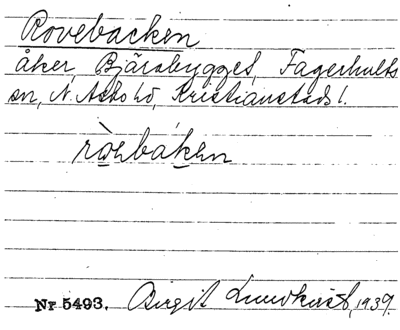 Rovebacken
åker, Bjärabygget, Fagerhults
sn, N. Åsbo hd, Kristianstads l.
ròvebáken
Nr 5493. Birgit Lundkvist, 1939.